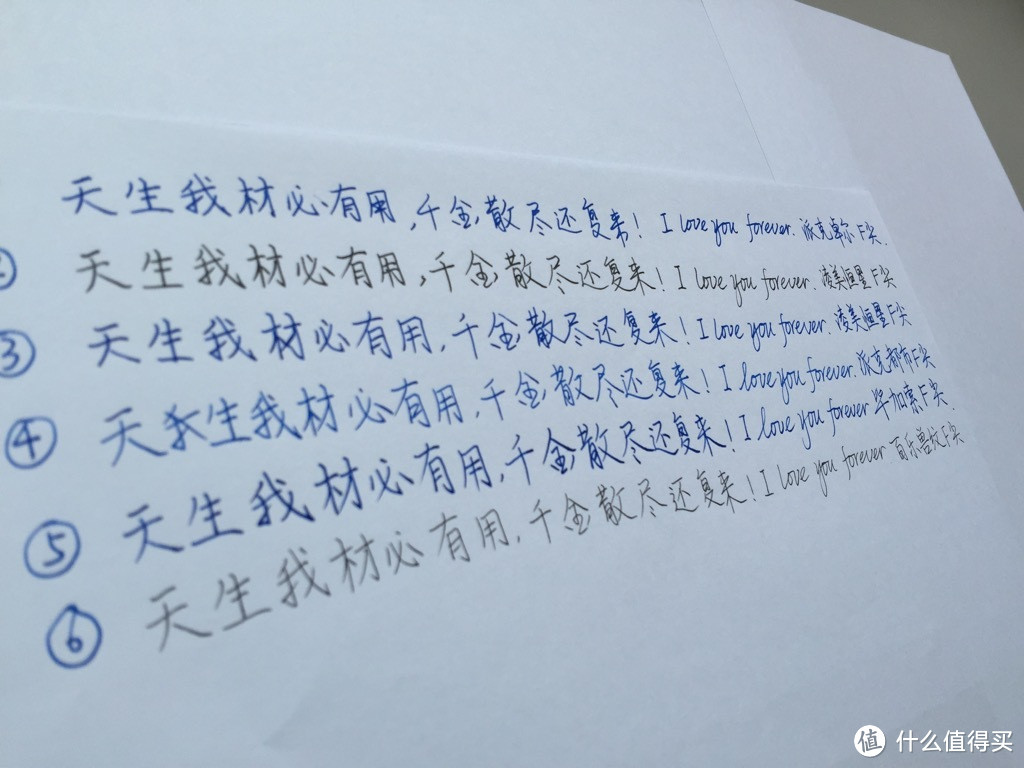 天生我材必有用,千金散尽还复来! I love you forever. 派克卓尔F尖.
② 天生我材必有用,千金散尽还复来! I love you forever. 凌美恒星F尖
③ 天生我材必有用,千金散尽还复来! I love you forever. 凌美恒星F尖
④ 天生我材必有用,千金散尽还复来! I love you forever. 派克都市F尖
⑤ 天生我材必有用,千金散尽还复来! I love you forever 毕加索F尖.
⑥ 天生我材必有用,千金散尽还复来! I love you forever 百乐兽纹F尖
值 什么值得买